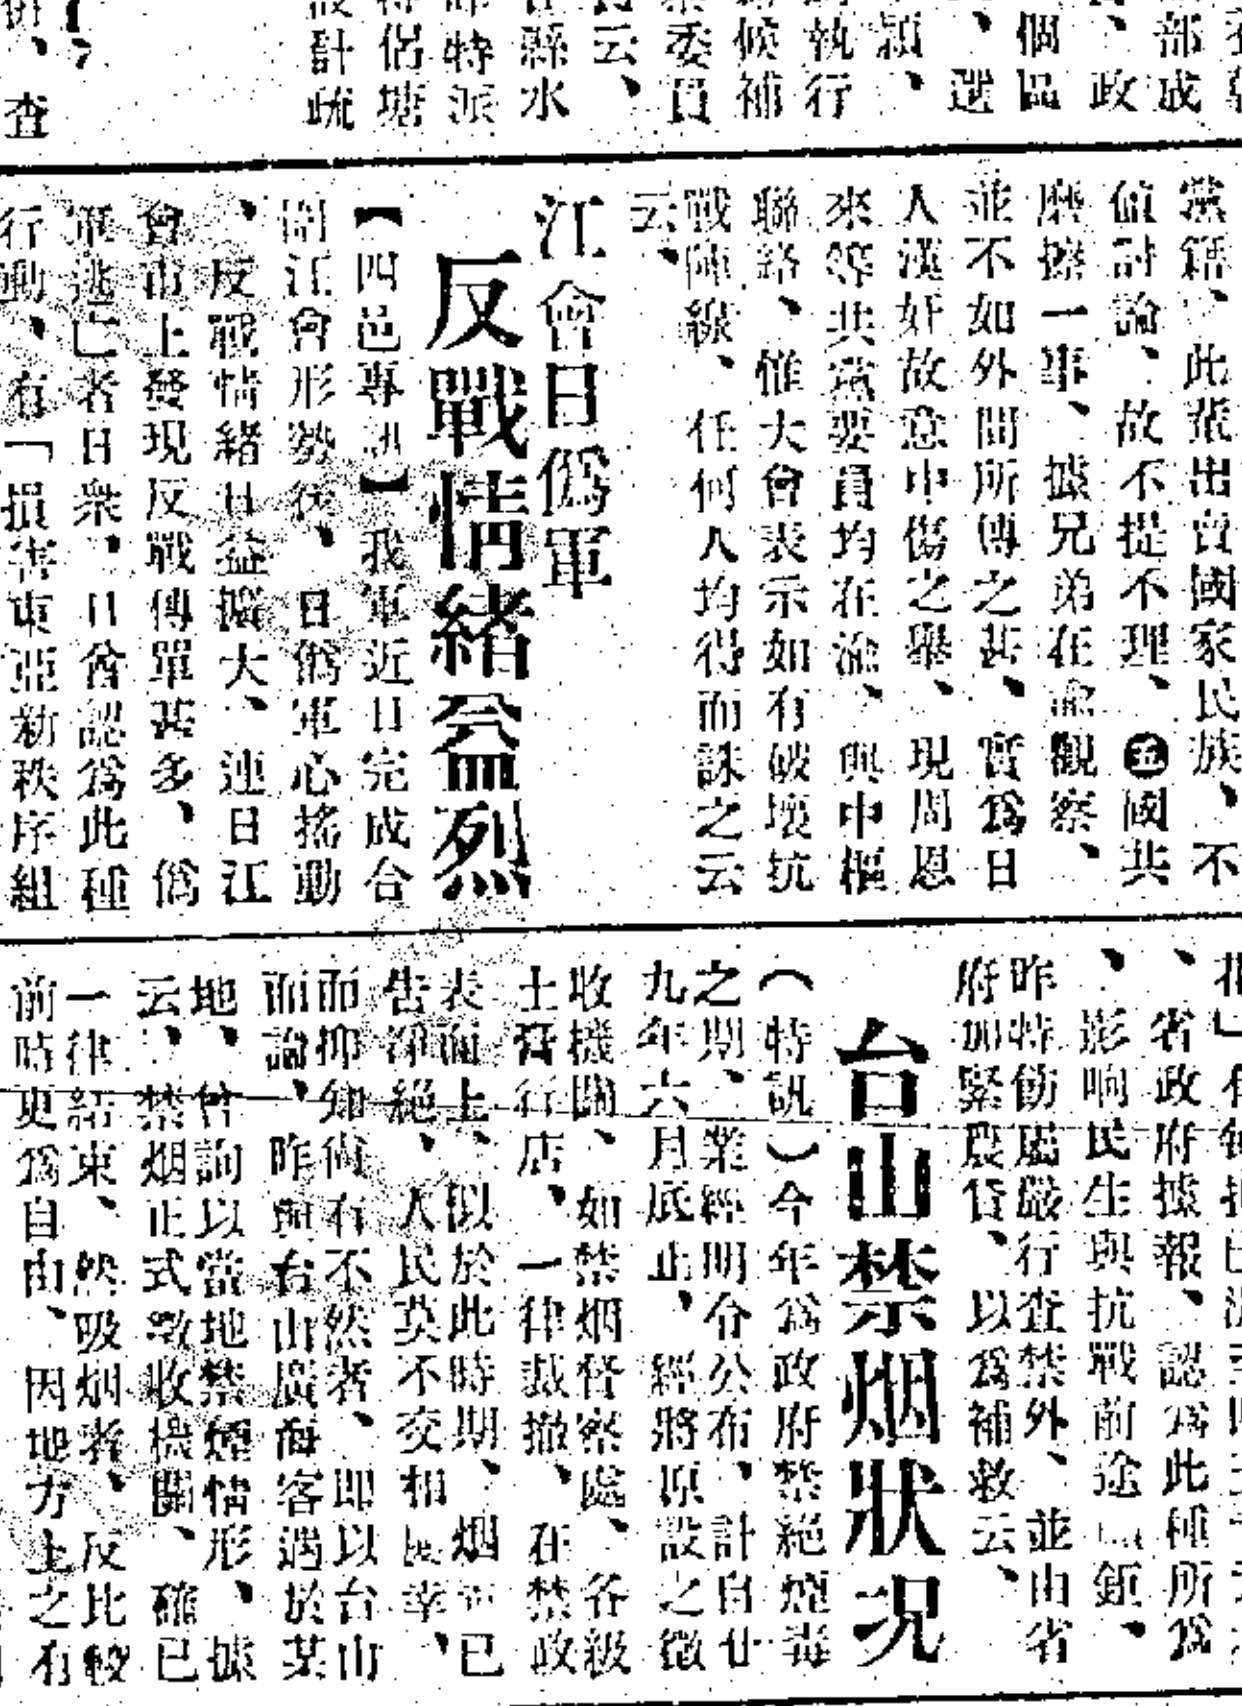 部成
、政
個區
、選
穎、
執行
候補
委員
云、
縣水
特派
侶塘
設計疏
、查
黨籍、此輩出賣國家民族、不
值討論、故不提不理、㊄國共
磨擦一事、據兄弟在渝觀察、
並不如外間所傳之甚、實爲日
人漢奸故意中傷之舉、現周恩
來等共黨要員均在渝、與中樞
聯絡、惟大會表示如有破壞抗
戰陣線、任何人均得而誅之云
云、
江會日僞軍
反戰情緒益烈
【四邑專訊】我軍近日完成合
圍江會形勢後、日僞軍心搖動
、反戰情緒日益擴大、連日江
會市上發現反戰傳單甚多、僞
軍逃亡者日衆、日酋認爲此種
行動、有「損害東亞新秩序組
、省政府據報、認爲此種所爲
、影响民生與抗戰前途 鉅、
昨特飭屬嚴行查禁外、並由省
府加緊農貸、以爲補救云、
台山禁烟狀況
（特訊）今年爲政府禁絕煙毒
之期、業經明令公布、計自廿
九年六月底止、經將原設之徵
收機關、如禁烟督察處、各級
土膏行店、一律裁撤、在禁政
表面上、似於此時期、烟 已
告淨絕、人民莫不交相 幸、
而抑知尚有不然者、即以台山
而論、昨與台山廣海客遇於某
地、曾詢以當地禁煙情形、據
云、禁烟正式徵收機關、確已
一律結束、然吸烟者、反比較
前時更爲自由、因地方上之有